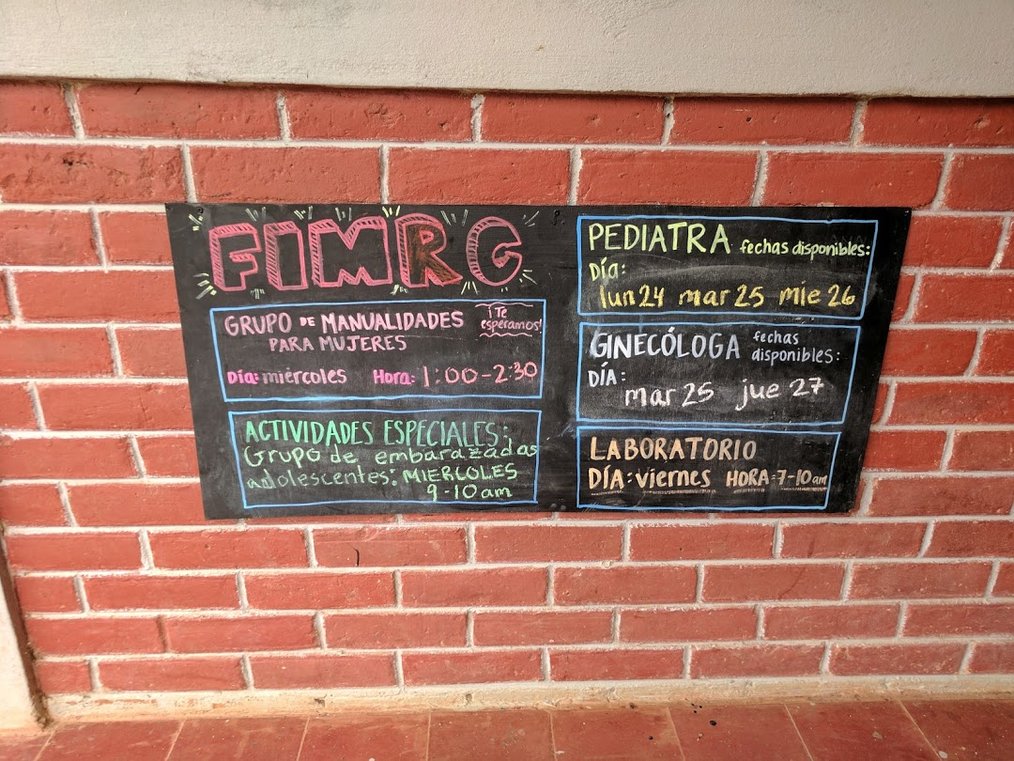 FIMRC
GRUPO DE MANUALIDADES
PARA MUJERES
¡Te
esperamos!
Día: miércoles Hora: 1:00-2:30
ACTIVIDADES ESPECIALES:
Grupo de embarazadas
adolescentes: MIERCOLES
9-10am
PEDIATRA fechas disponibles:
Día:
lun24 mar25 mie 26
GINECÓLOGA fechas
disponibles:
DÍA:
mar25 jue 27
LABORATORIO
DÍA: viernes HORA: 7-10am